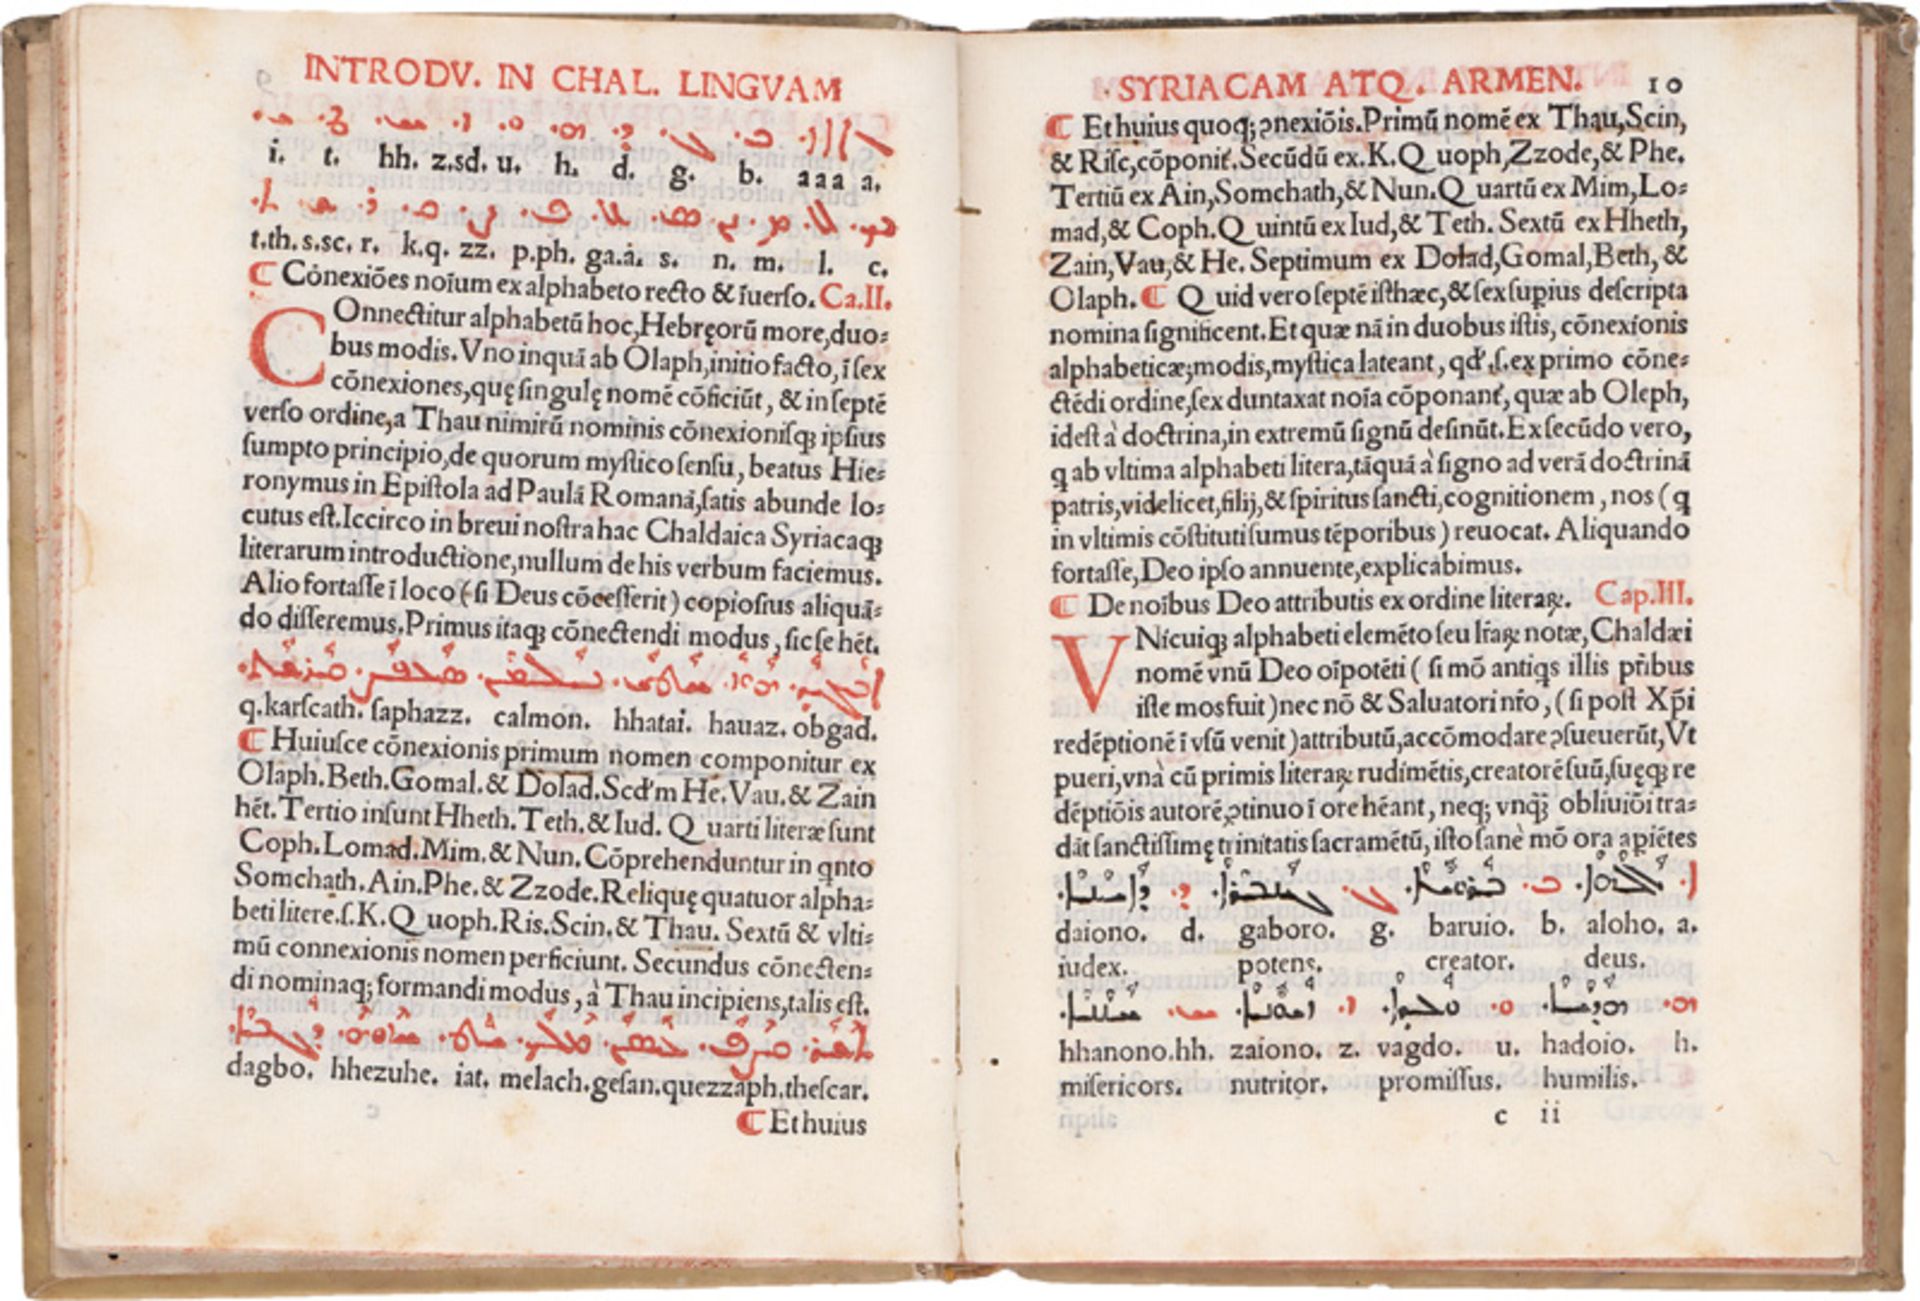 INTRODV. IN CHAL. LINGVAM
i. t. hh. z.sd. u. h. d. g. b. aaa a.
t.th. s.sc. r. k.q. zz. p.ph. ga.a. s. n. m. l. c.
¶ Cōnexiões noīum ex alphabeto recto & īuerso. Ca.II.
COnnectitur alphabetū hoc, Hebręorū more, duo=
bus modis. Vno inquā ab Olaph, initio facto, ī sex
cōnexiones, quę singulę nomē cōficiūt, & in septē
verso ordine, a Thau nimirū nominis cōnexionisqꝫ ipsius
sumpto principio, de quorum mystico sensu, beatus Hie=
ronymus in Epistola ad Paulā Romanā, satis abunde lo=
cutus est. Iccirco in breui nostra hac Chaldaica Syriacaqꝫ
literarum introductione, nullum de his verbum faciemus.
Alio fortasse ī loco (si Deus cōcesserit) copiosius aliquā=
do disseremus. Primus itaqꝫ cōnectendi modus, sic se hēt.
q.karscath. saphazz. calmon. hhatai. hauaz. obgad.
¶ Huiusce cōnexionis primum nomen componitur ex
Olaph. Beth. Gomal. & Dolad. Scd'm He. Vau. & Zain
hēt. Tertio insunt Hheth. Teth. & Iud. Quarti literæ sunt
Coph. Lomad. Mim. & Nun. Cōprehenduntur in qnto
Somchath. Ain. Phe. & Zzode. Reliquę quatuor alpha=
beti litere. s. K. Quoph. Ris. Scin. & Thau. Sextū & vlti=
mū connexionis nomen perficiunt. Secundus cōnecten=
di nominaqꝫ formandi modus, à Thau incipiens, talis est.
dagbo. hhezuhe. iat. melach. gesan. quezzaph. thescar.
¶ Et huius
SYRIACAM ATQ. ARMEN. 10
¶ Et huius quoqꝫ ꝯnexiōis. Primū nomē ex Thau, Scin,
& Risc, cōponit̃. Secūdū ex. K. Quoph, Zzode, & Phe.
Tertiū ex Ain, Somchath, & Nun. Quartū ex Mim, Lo=
mad, & Coph. Quintū ex Iud, & Teth. Sextū ex Hheth,
Zain, Vau, & He. Septimum ex Dolad, Gomal, Beth, &
Olaph. ¶ Quid vero septē isthæc, & sex supius descripta
nomina significent. Et quæ nā in duobus istis, cōnexionis
alphabeticæ, modis, mystica lateant, qd'. s. ex primo cōne=
ctēdi ordine, sex duntaxat noīa cōponant̃, quæ ab Oleph,
idest à doctrina, in extremū signū desinūt. Ex secūdo vero,
q ab vltima alphabeti litera, tāquā à signo ad verā doctrinā
patris, videlicet, filij, & spiritus sancti, cognitionem, nos (q
in vltimis cōstituti sumus tēporibus) reuocat. Aliquando
fortasse, Deo ipso annuente, explicabimus.
¶ De noībus Deo attributis ex ordine literaꝝ. Cap.III.
VNicuiqꝫ alphabeti elemēto seu lr̃aꝝ notæ, Chaldæi
nomē vnū Deo oīpotēti (si mō antiqs illis pr̃ibus
iste mos fuit) nec nō & Saluatori nr̃o, (si post Xp̄i
redēptionē ī vsū venit) attributū, accōmodare ꝯsueuerūt, Vt
pueri, vnà cū primis literaꝝ rudimētis, creatorē suū, suęqꝫ re
dēptiōis autorē, ꝯtinuo ī ore hēant, neqꝫ vnqꝫ obliuiōi tra=
dāt sanctissimę trinitatis sacramētū, isto sanè mō ora apiētes
ܐ. ܐܠܗܐ. ܒ. ܒܪܘܝܐ. ܓ. ܓܢܒܪܐ. ܕ. ܕܝܢܐ.
daiono. d. gaboro. g. baruio. b. aloho. a.
iudex. potens. creator. deus.
hhanono. hh. zaiono. z. vagdo. u. hadoio. h.
misericors. nutritor. promissus. humilis.
c ii